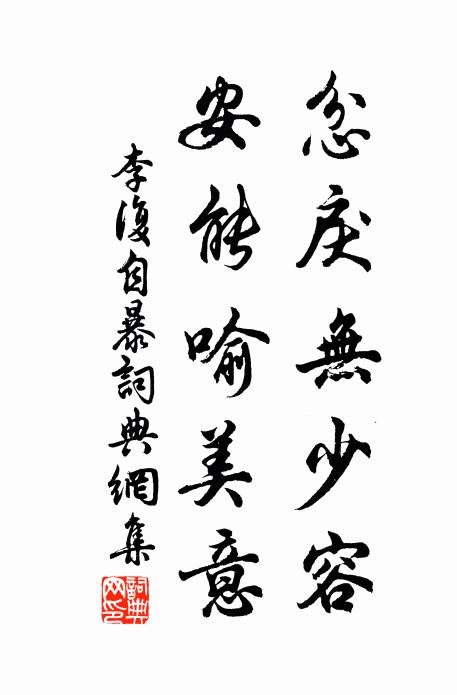 忿戾無少容
安能喻美意
李復自暴詞典網集
詞典網印